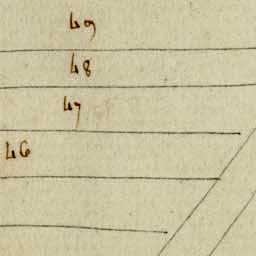 49
48
47
46